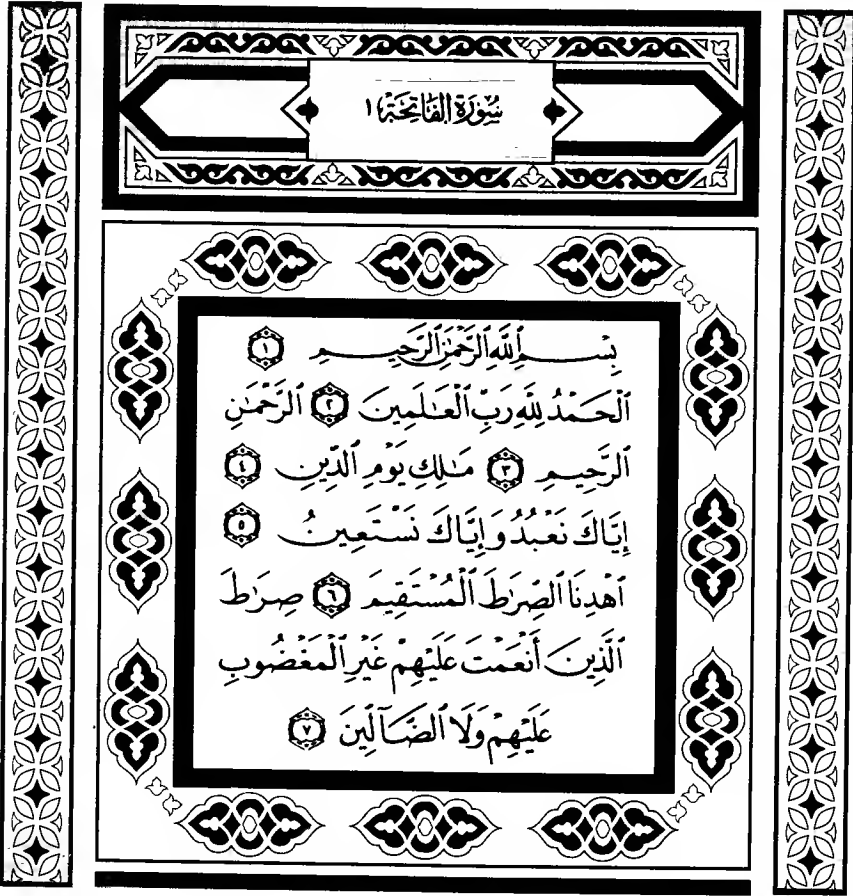 سُورَةُ الفَاتِحَة ١
بِسْمِ ٱللَّهِ ٱلرَّحْمَٰنِ ٱلرَّحِيمِ ١
ٱلْحَمْدُ لِلَّهِ رَبِّ ٱلْعَٰلَمِينَ ٢ ٱلرَّحْمَٰنِ
ٱلرَّحِيمِ ٣ مَٰلِكِ يَوْمِ ٱلدِّينِ ٤
إِيَّاكَ نَعْبُدُ وَإِيَّاكَ نَسْتَعِينُ ٥
ٱهْدِنَا ٱلصِّرَٰطَ ٱلْمُسْتَقِيمَ ٦ صِرَٰطَ
ٱلَّذِينَ أَنْعَمْتَ عَلَيْهِمْ غَيْرِ ٱلْمَغْضُوبِ
عَلَيْهِمْ وَلَا ٱلضَّآلِّينَ ٧